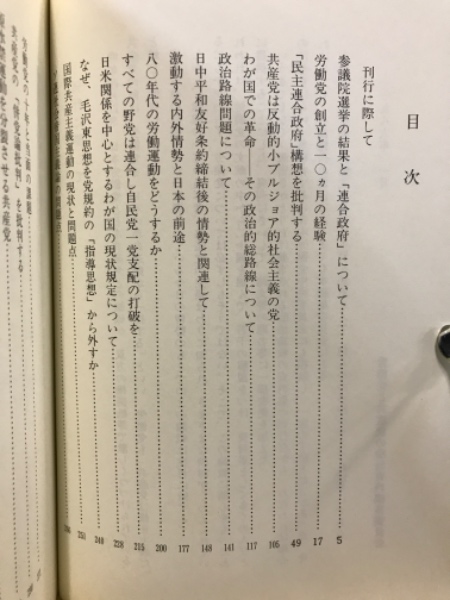 目次
刊行に際して
参議院選挙の結果と「連合政府」について……5
労働党の創立と一〇ヵ月の経験……17
「民主連合政府」構想を批判する……49
共産党は反動的小ブルジョア的社会主義の党……105
わが国での革命——その政治的総路線について……117
政治路線問題について……141
日中平和友好条約締結後の情勢と関連して……148
激動する内外情勢と日本の前途……177
八〇年代の労働運動をどうするか……200
すべての野党は連合し自民党一党支配の打破を……215
日米関係を中心とするわが国の現状規定について……228
なぜ、毛沢東思想を党規約の「指導思想」から外すか……248
国際共産主義運動の現状と問題点……251